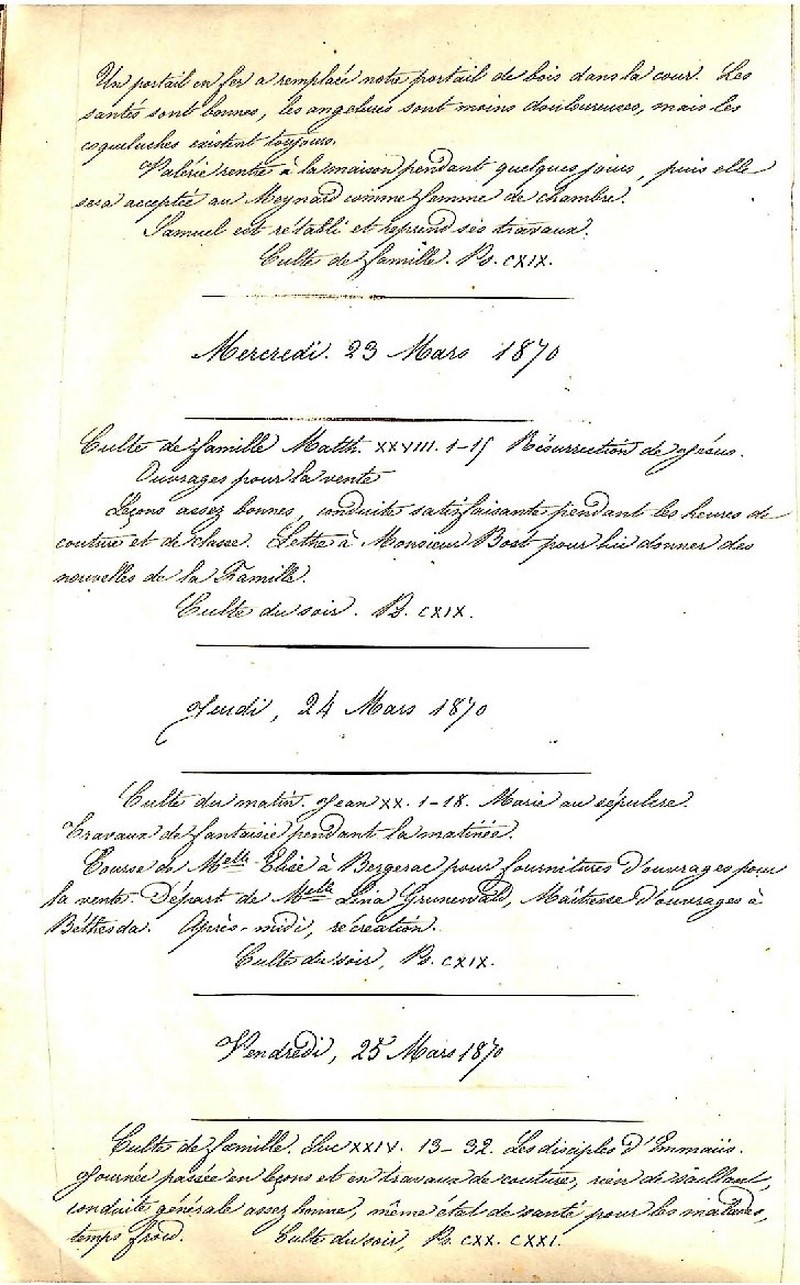 Un portail en fer a remplacé notre portail de bois dans la cour. Les
santés sont bonnes, les angelures sont moins douloureuses, mais les
coqueluches existent toujours.
Valérie rentre à la maison pendant quelques jours, puis elle
sera acceptée au Meynard comme femme de chambre.
Samuel est rétabli et reprend ses travaux.
Culte de famille. Ps. CXIX.
Mercredi. 23 Mars 1870
Culte de famille Matth. XXVIII. 1-15 Résurrection de Jésus.
Ouvrages pour la vente
Leçons assez bonnes, conduite satisfaisante pendant les heures de
couture et de classe. Lettre à Monsieur Bost pour lui donner des
nouvelles de la Famille.
Culte du soir. Ps. CXIX.
Jeudi, 24 Mars 1870
Culte du matin. Jean XX. 1-18. Marie au sépulcre.
Travaux de fantaisie pendant la matinée.
Course de Melle Elise à Bergerac pour fournitures d'ouvrages pour
la vente. Départ de Melle Lina Grunewald, Maîtresse d'ouvrages à
Béthesda. Après-midi, récréation.
Culte du soir, Ps. CXIX.
Vendredi, 25 Mars 1870
Culte de famille. Luc XXIV. 13-32. Les disciples d'Emmaüs.
Journée passée en leçons et en travaux de couture, rien de saillant,
conduite générale assez bonne, même état de santé pour les malades,
temps froid. Culte du soir, Ps. CXX. CXXI.